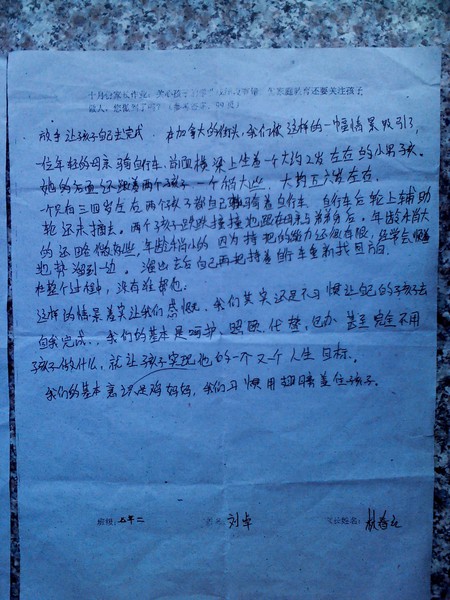 十月份家长作业：关心孩子 家庭教育还要关注孩子
做人，您做到了吗？（参考答案，99度）
放手让孩子自己去完成 在加拿大的街头，我们被这样的一幅情景吸引了，
一位年轻的母亲骑自行车，前面横梁上坐着一个大约2岁左右的小男孩。
她的后面还跟着两个孩子一个稍大些，大约五六岁左右
一个只有三四岁左右两个孩子都自己骑着自行车，自行车后轮上辅助
轮还未摘去。两个孩子跌跌撞撞地跟在母亲与弟弟后。年龄稍大
的还略做好些，年龄稍小的因为持把的能力还很有限，经常会
地转溜到一边。溜出去后自己再把持着自行车重新找回方向
在整个过程中，没有谁帮他。
这样的情景着实让我们感慨。我们其实还是不习惯让自己的孩子去
自我完成，我们的基本是呵护、照顾、代替，包办甚至完全不用
孩子做什么，就让孩子实现他的一个又个人生目标。
我们的基本意识是鸡妈妈，我们习惯用翅膀盖住孩子。
班级：五年二 刘卓 家长姓名：林